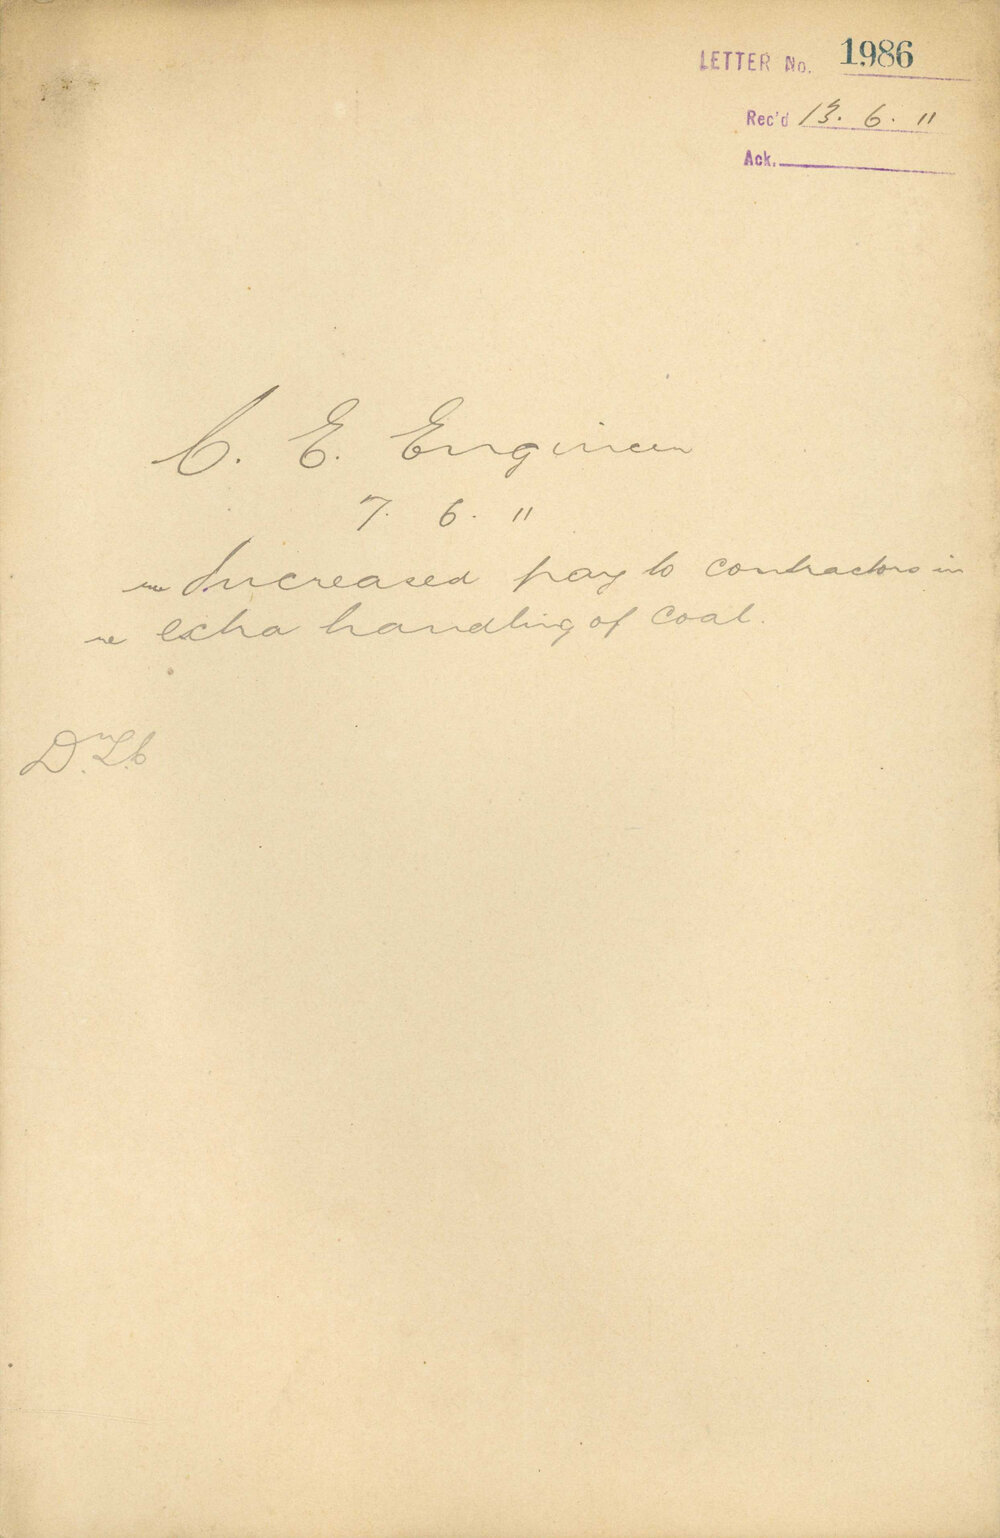 LETTER No. 1986
Rec'd 13. 6. 11
Ack.
C. E. Engineer
7. 6. 11
re Increased pay to contractors in
re extra handling of coal.